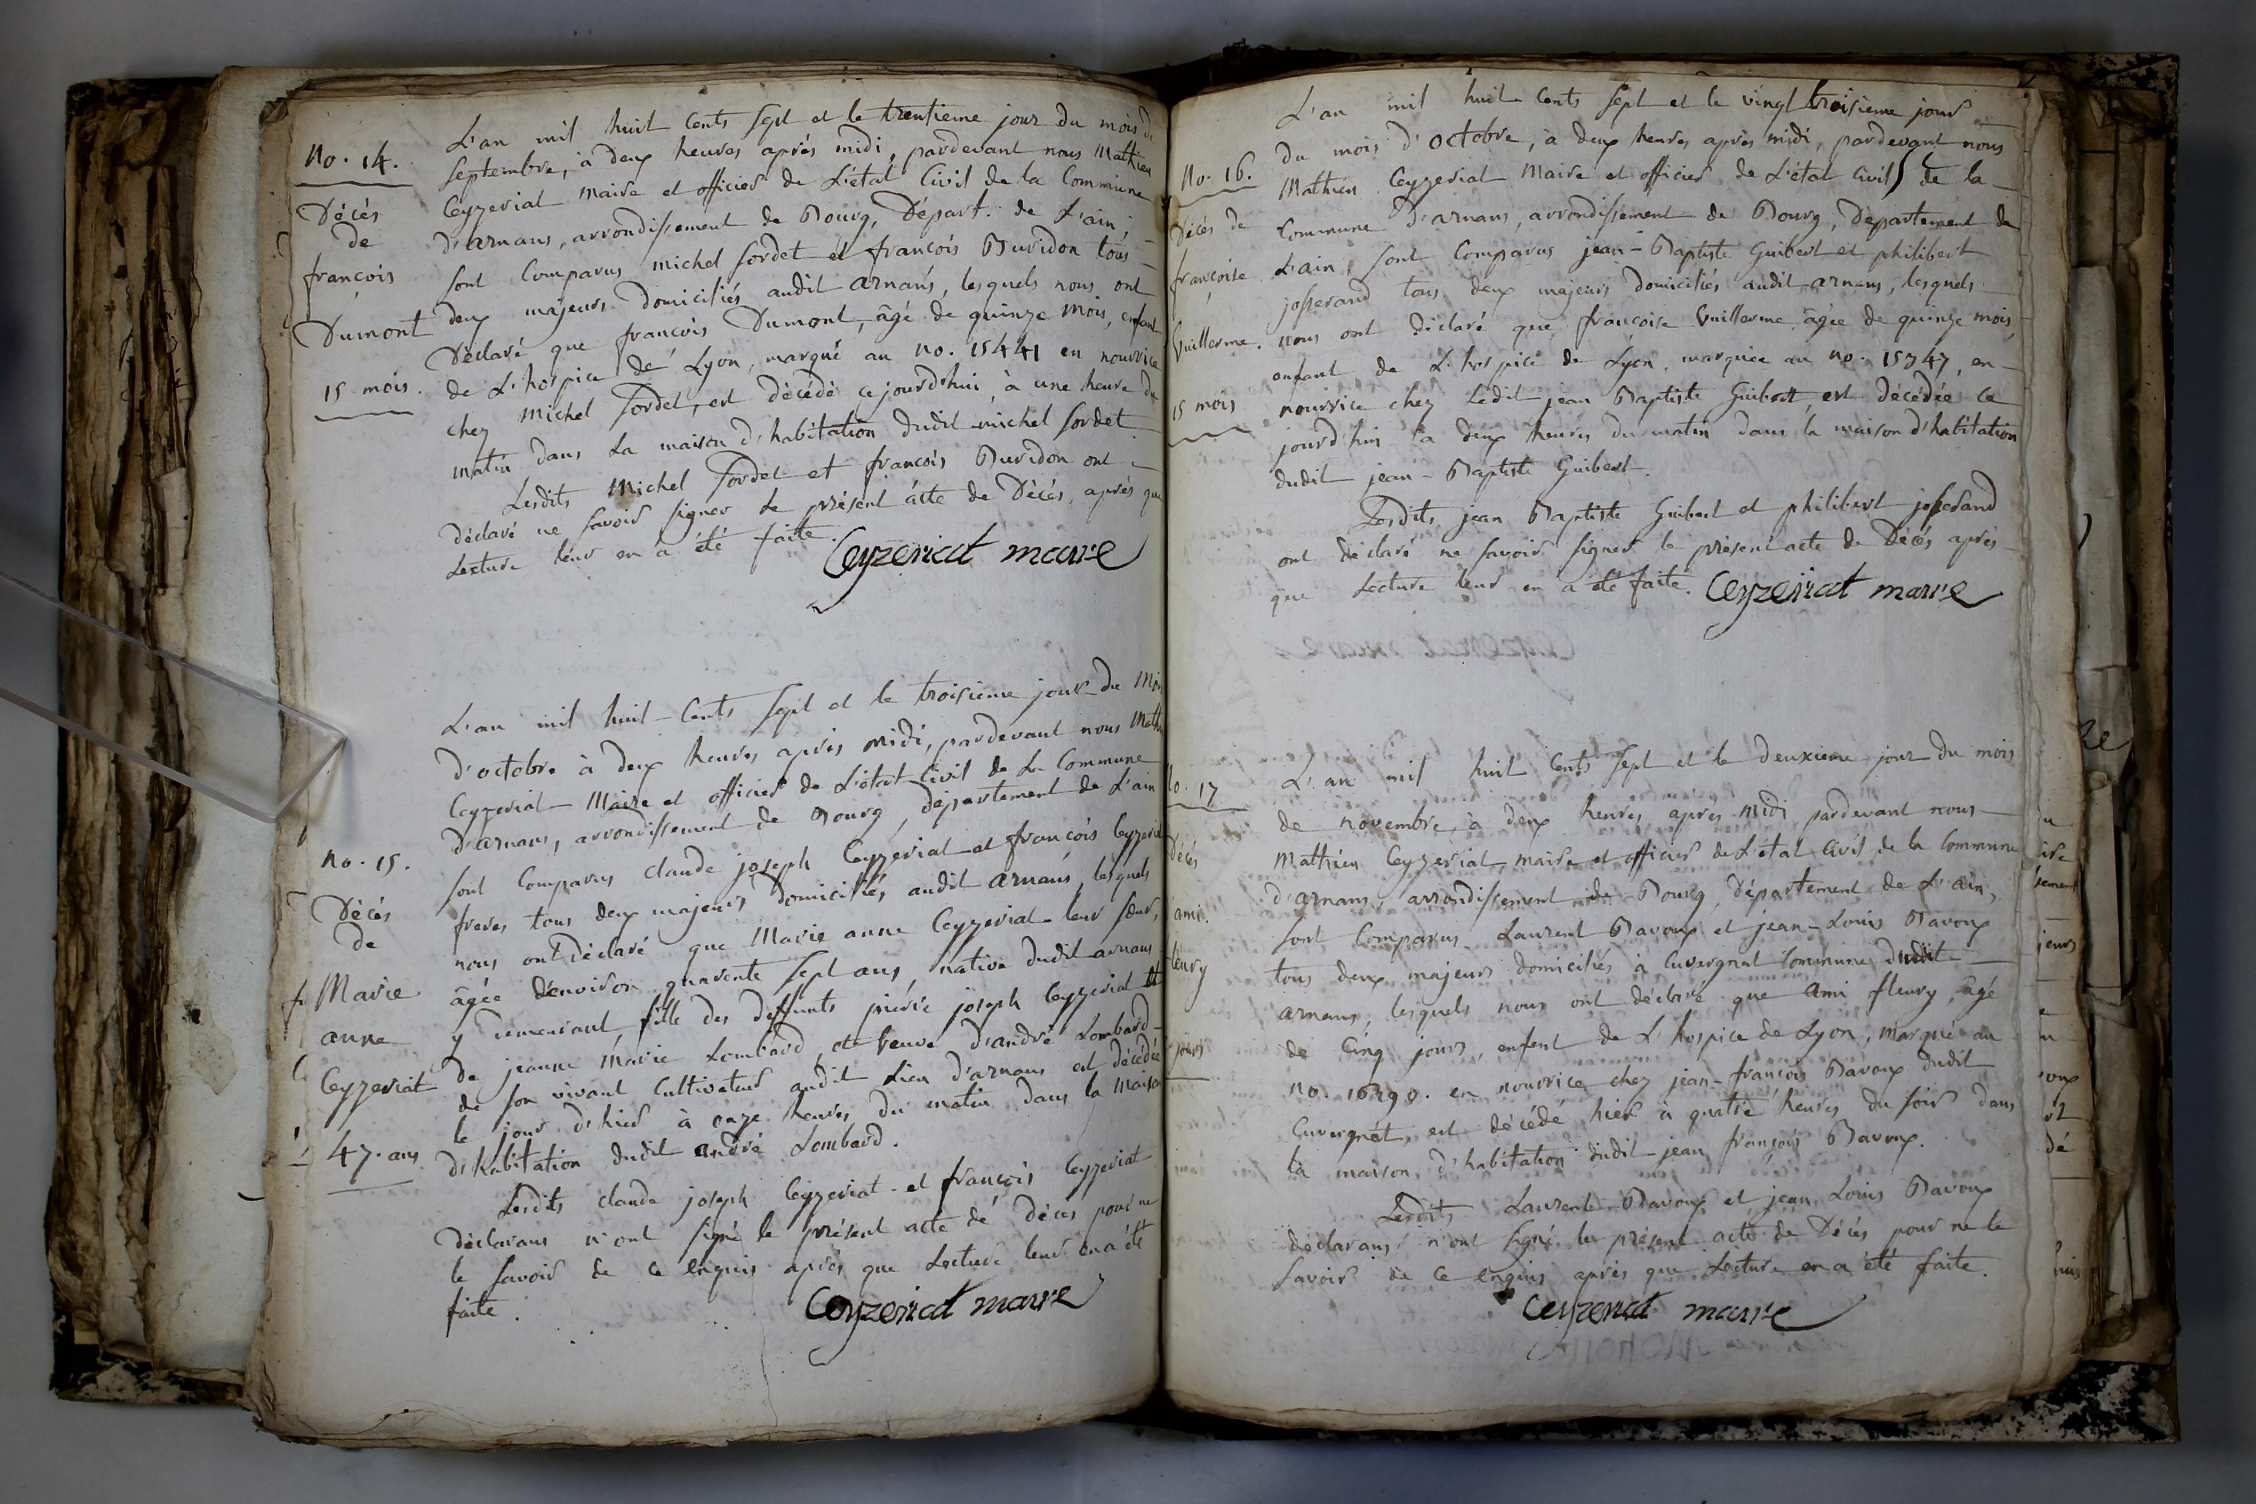 No. 14.
Décés
de
françois
Dumont
15 mois.
L'an mil huit cents sept et le trentieme jour du mois de
septembre, à deux heures après midi, pardevant nous Mathieu
Ceyzeriat maire et officier de L'état Civil de la Commune
d'arnans, arrondissement de Bourg, Départ. de L'ain,
sont Comparus michel sordet et françois Buridon tous
deux majeurs domiciliés audit arnans, lesquels nous ont
Déclaré que françois Dumont, âgé de quinze mois, enfant
de L'hospice de Lyon, marqué au no. 15441 en nourrice
chez Michel Sordet, est décédé cejourd'hui à une heure du
matin dans la maison d'habitation dudit michel sordet
Lesdits Michel Sordet et françois Buridon ont
déclaré ne savoir signer le présent acte de Décés, après que
Lecture leur en a été faite.
Ceyzeriat maire
no. 15.
Décés
de
Marie
anne
Ceyzeriat
47. ans
L'an mil huit-Cents sept et le troisieme jour du Mois
d'octobre à deux heures après midi, pardevant nous Mathieu
Ceyzeriat Maire et officier de L'état Civil de La Commune
d'arnans, arrondissement de Bourg, département de L'ain
sont Comparus claude joseph Ceyzériat et françois Ceyzeriat
freres tous deux majeurs domiciliés audit arnans, lesquels
nous ont déclaré que Marie anne Ceyzeriat leur sœur,
âgée d'environ quarente sept ans, native dudit arnans
y demeurant, fille des deffunts pierre joseph Ceyzeriat et
de jeanne Marie Lombard, et veuve d'andré Lombard
de son vivant Cultivateur audit Lieu d'arnans est décédée
le jour d'hier à onze heures du matin dans la Maison
d'habitation dudit andré Lombard.
Lesdits claude joseph Ceyzeriat et françois Ceyzeriat
déclarans n'ont signé le présent acte de Décés pour ne
le savoir de ce enquis après que Lecture leur en a été
faite.
Ceyzeriat maire
No. 16.
Décés de
françoise
Guillerme.
15 mois
L'an mil huit Cents sept et le vingt troisieme jour
du mois d'octobre, à deux heures après midi, pardevant nous
Mathieu Ceyzeriat Maire et officier de L'état Civil de la
Commune d'arnans, arrondissement de Bourg, Département de
L'ain, sont Comparus jean-Baptiste Guibert et philibert
josserand tous deux majeurs domiciliés audit arnans, lesquels
nous ont déclaré que françoise Guillerme âgée de quinze mois
enfant de L'hospice de Lyon, marquée au no. 15747, en
nourrice chez Ledit jean Baptiste Guibert, est décédée ce
jourd'hui à deux heures du matin dans la maison d'habitation
dudit jean-Baptiste Guibert.
Lesdits jean Baptiste Guibert et philibert josserand
ont déclaré ne savoir signer le présent acte de Décés après
que Lecture leur en a été faite. Ceyzeriat maire
No. 17
Décés
ami
fleury
jours
L'an mil huit Cents sept et le deuxieme jour du mois
de novembre, à deux heures après midi pardevant nous
Mathieu Ceyzeriat maire et officier de L'état Civil de la Commune
d'arnans, arrondissement de Bourg, Département de L'ain,
sont Comparus Laurent Bavoux et jean-Louis Bavoux
tous deux majeurs domiciliés à Cuvergnat Commune dudit
arnans, lesquels nous ont déclaré que ami fleury, âgé
de Cinq jours, enfant de L'hospice de Lyon, marqué au
no. 16290. en nourrice chez jean-françois Bavoux dudit
Cuvergnat, est décédé hier à quatre heures du soir dans
la maison d'habitation dudit jean françois Bavoux.
Lesdits Laurent Bavoux et jean Louis Bavoux
déclarans n'ont signé le présent acte de Décés pour ne le
savoir de ce enquis après que Lecture en a été faite.
Ceyzeriat maire